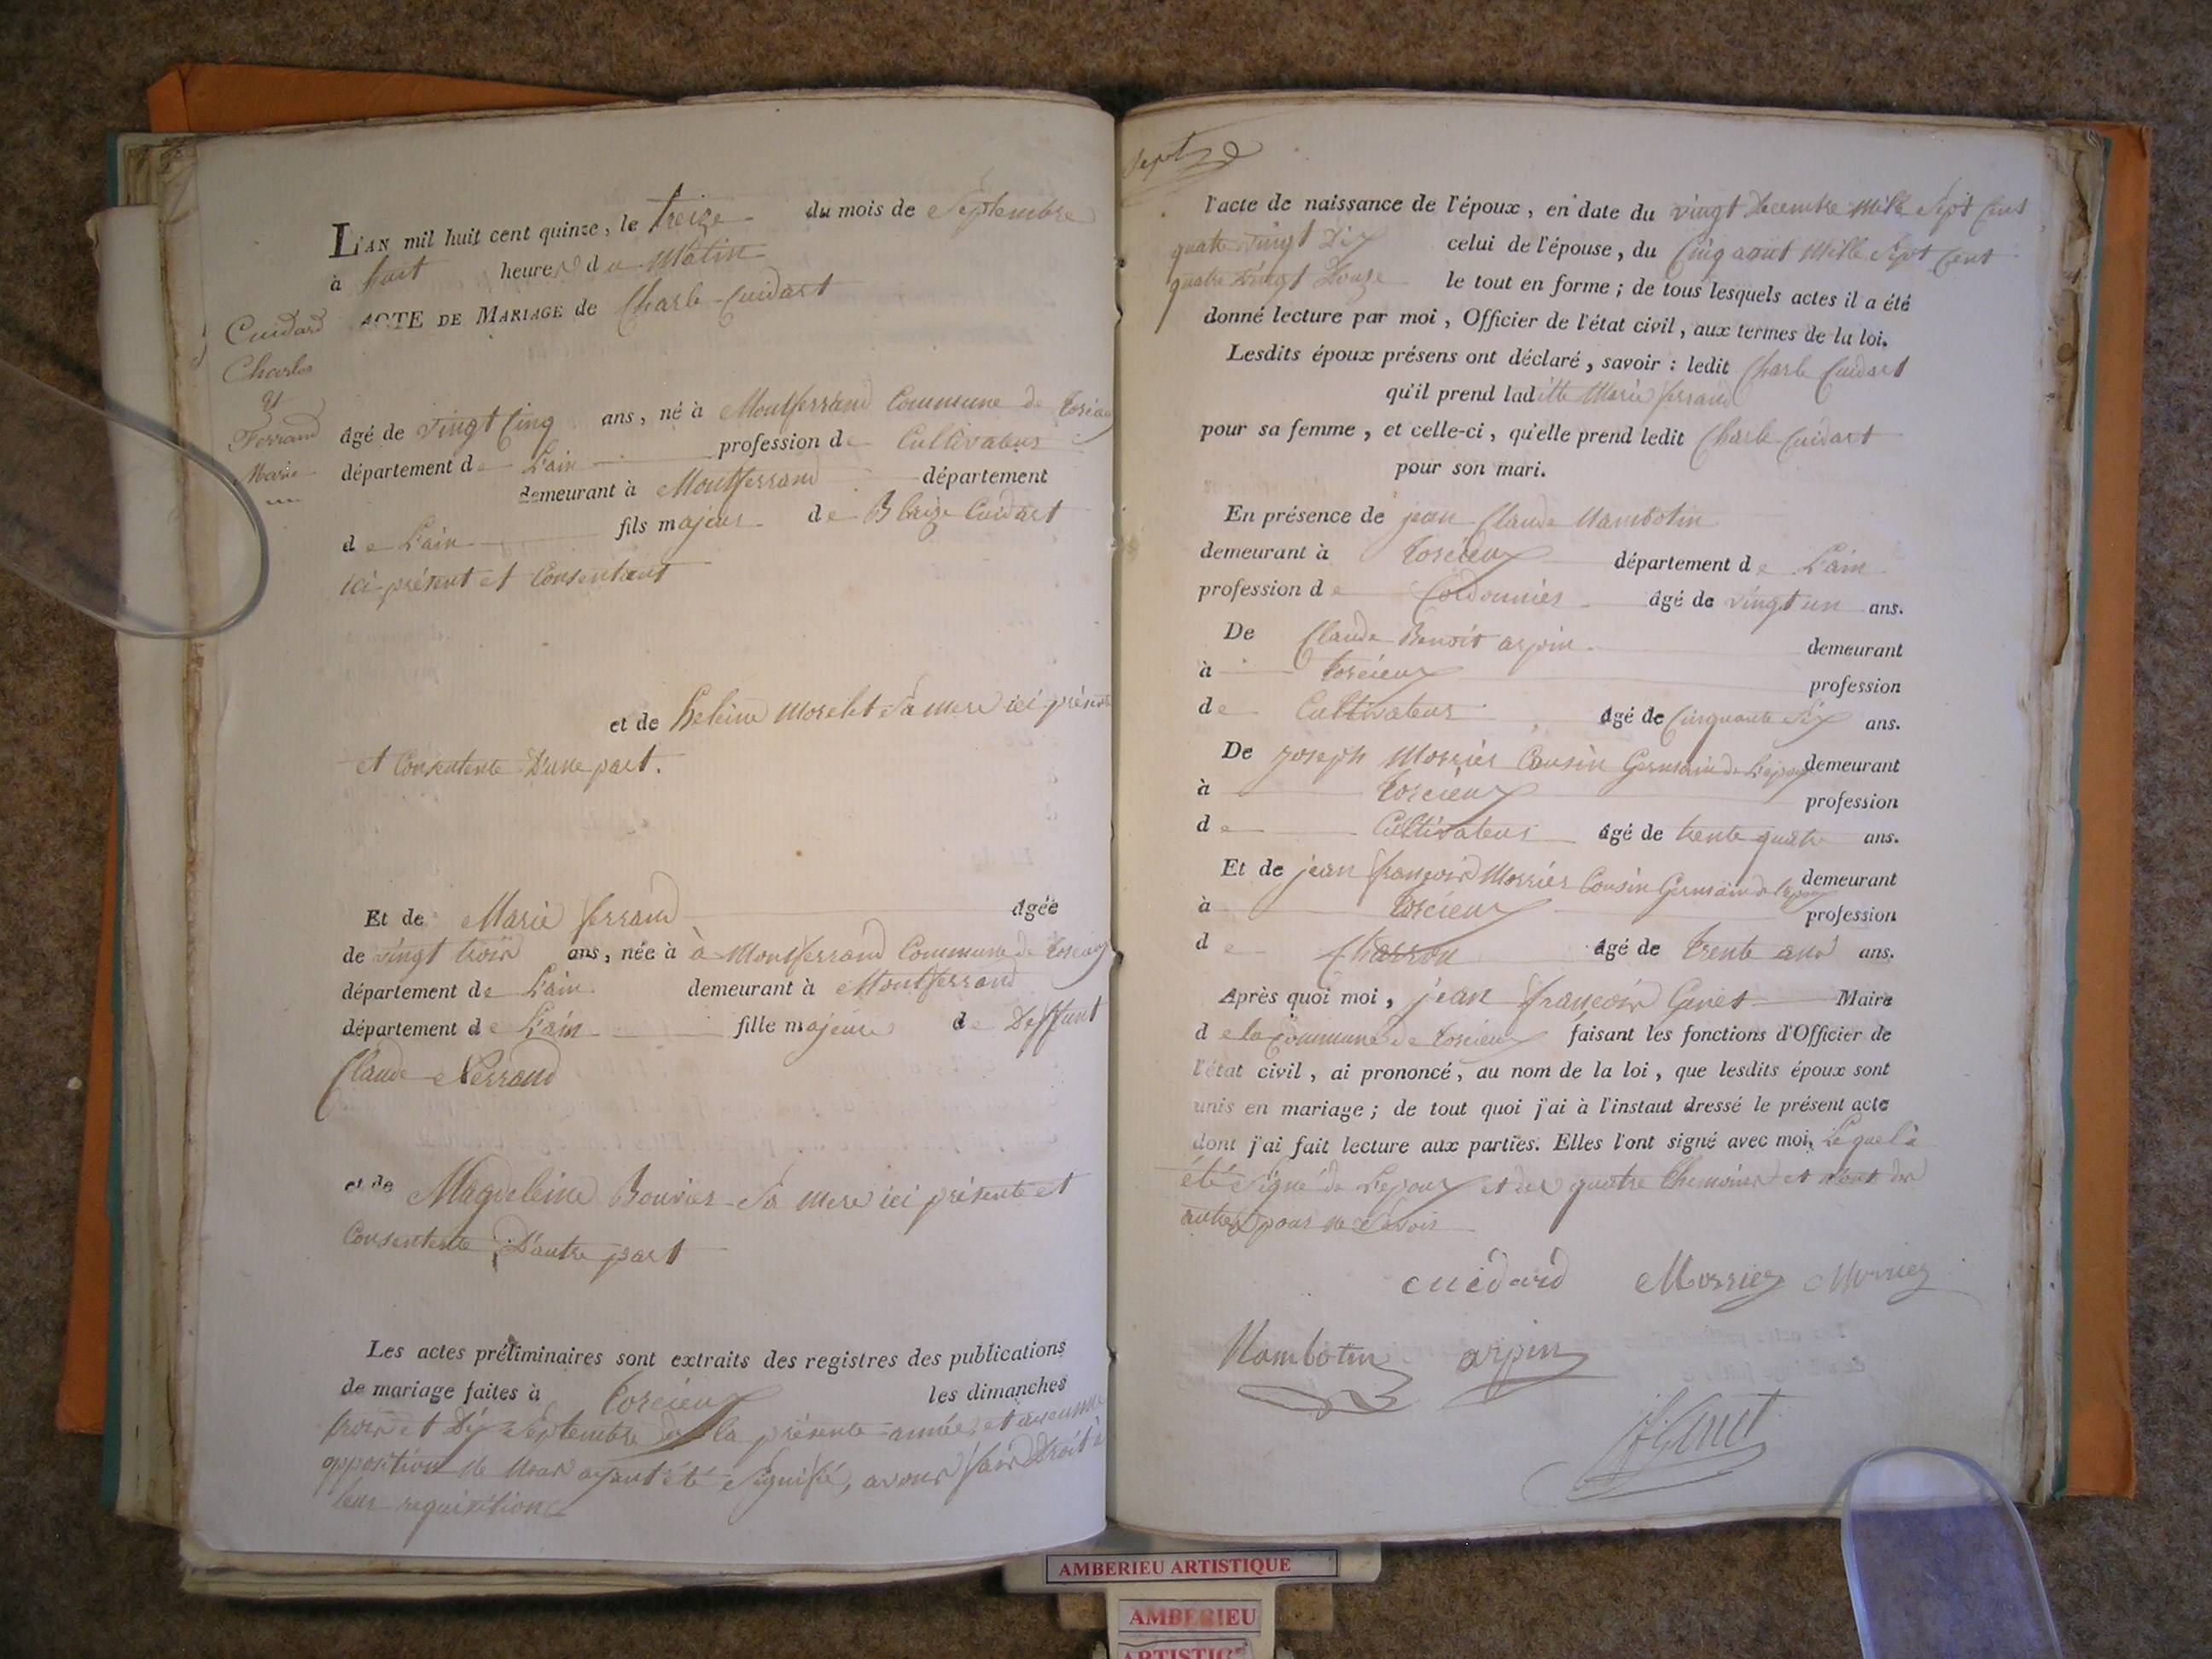 L'AN mil huit cent quinze, le treize du mois de Septembre
à huit heures du Matin
ACTE DE MARIAGE de Charle Cuidart
Cuidard
Charles
et
Ferrand
Marie
âgé de vingt Cinq ans, né à Montferrand Commune de torcieu
département de L'ain profession de Cultivateur
demeurant à Montferrand département
de L'ain fils majeur de Blaize Cuidart
ici présent et Consentant
et de heleine Morelet Sa mere ici présente
et Consentente D'une part.
Et de Marie ferrand âgée
de vingt trois ans, née à à Montferrand Commune de torcieu
département de L'ain demeurant à Montferrand
département de L'ain fille majeure de Deffunt
Claude ferrand
et de Magdeleine Bouvier Sa mere ici présente et
Consentente D'autre part
Les actes préliminaires sont extraits des registres des publications
de mariage faites à torcieux les dimanches
trois et Dix Septembre de la présente année, et aucunne
opposition ne Nous ayant été Signifié, avons fais Droit à
leur requisitions
Sept
l'acte de naissance de l'époux, en date du vingt Decembre Mille Sept Cent
quatre vingt Dix celui de l'épouse, du Cinq aout Mille Sept Cent
quatre vingt Douze le tout en forme; de tous lesquels actes il a été
donné lecture par moi, Officier de l'état civil, aux termes de la loi.
Lesdits époux présens ont déclaré, savoir: ledit Charle Cuidart
qu'il prend laditte Marie ferrand
pour sa femme, et celle-ci, qu'elle prend ledit Charle Cuidart
pour son mari.
En présence de jean Claude Nambotin
demeurant à torcieux département de L'ain
profession de Cordonnier âgé de vingt un ans.
De Claude Benoit arpin demeurant
à torcieux profession
de Cultivateur âgé de Cinquante Six ans.
De joseph Morrier Cousin Germain de L'epoux demeurant
à torcieux profession
de Cultivateur âgé de trente quatre ans.
Et de jean françois Morrier Cousin Germain de l'epoux demeurant
à torcieux profession
de Charron âgé de trente ans ans.
Après quoi moi, jean françois Genet Maire
de la Commune de torcieux faisant les fonctions d'Officier de
l'état civil, ai prononcé, au nom de la loi, que lesdits époux sont
unis en mariage; de tout quoi j'ai à l'instant dressé le présent acte
dont j'ai fait lecture aux parties. Elles l'ont signé avec moi, Lequel à
été Signé de L'epoux et des quatre themoins et Nont les
autres pour ne Savoir
cuidard Morrier Morrier
Nambotin arpin
AMBERIEU ARTISTIQUE
AMBERIEU
ARTISTIQUE